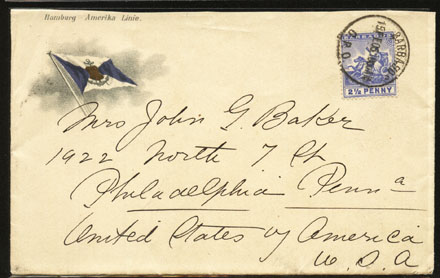 Hamburg Amerika Linie.
BARBADOS
2½ PENNY
Mrs John G Baker
1922 North 7 St
Philadelphia Penna
United States of America
U S A